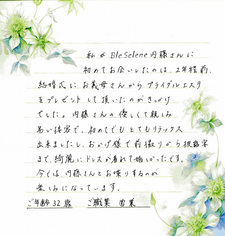 私が BleSelene 内藤さんに
初めてお会いしたのは、2年程前、
結婚式にお義母さんからブライダルエステ
をプレゼントして頂いたのがきっかけ
でした。内藤さんの優しくて親しみ
易い接客で、初めてでもとてもリラックス
出来ましたし、おかげ様で前撮りから披露宴
まで、綺麗にドスが着れて嬉しかったです。
今では、内藤さんとお喋りするのが
楽しみになっています。
ご年齢 32歳 ご職業 営業